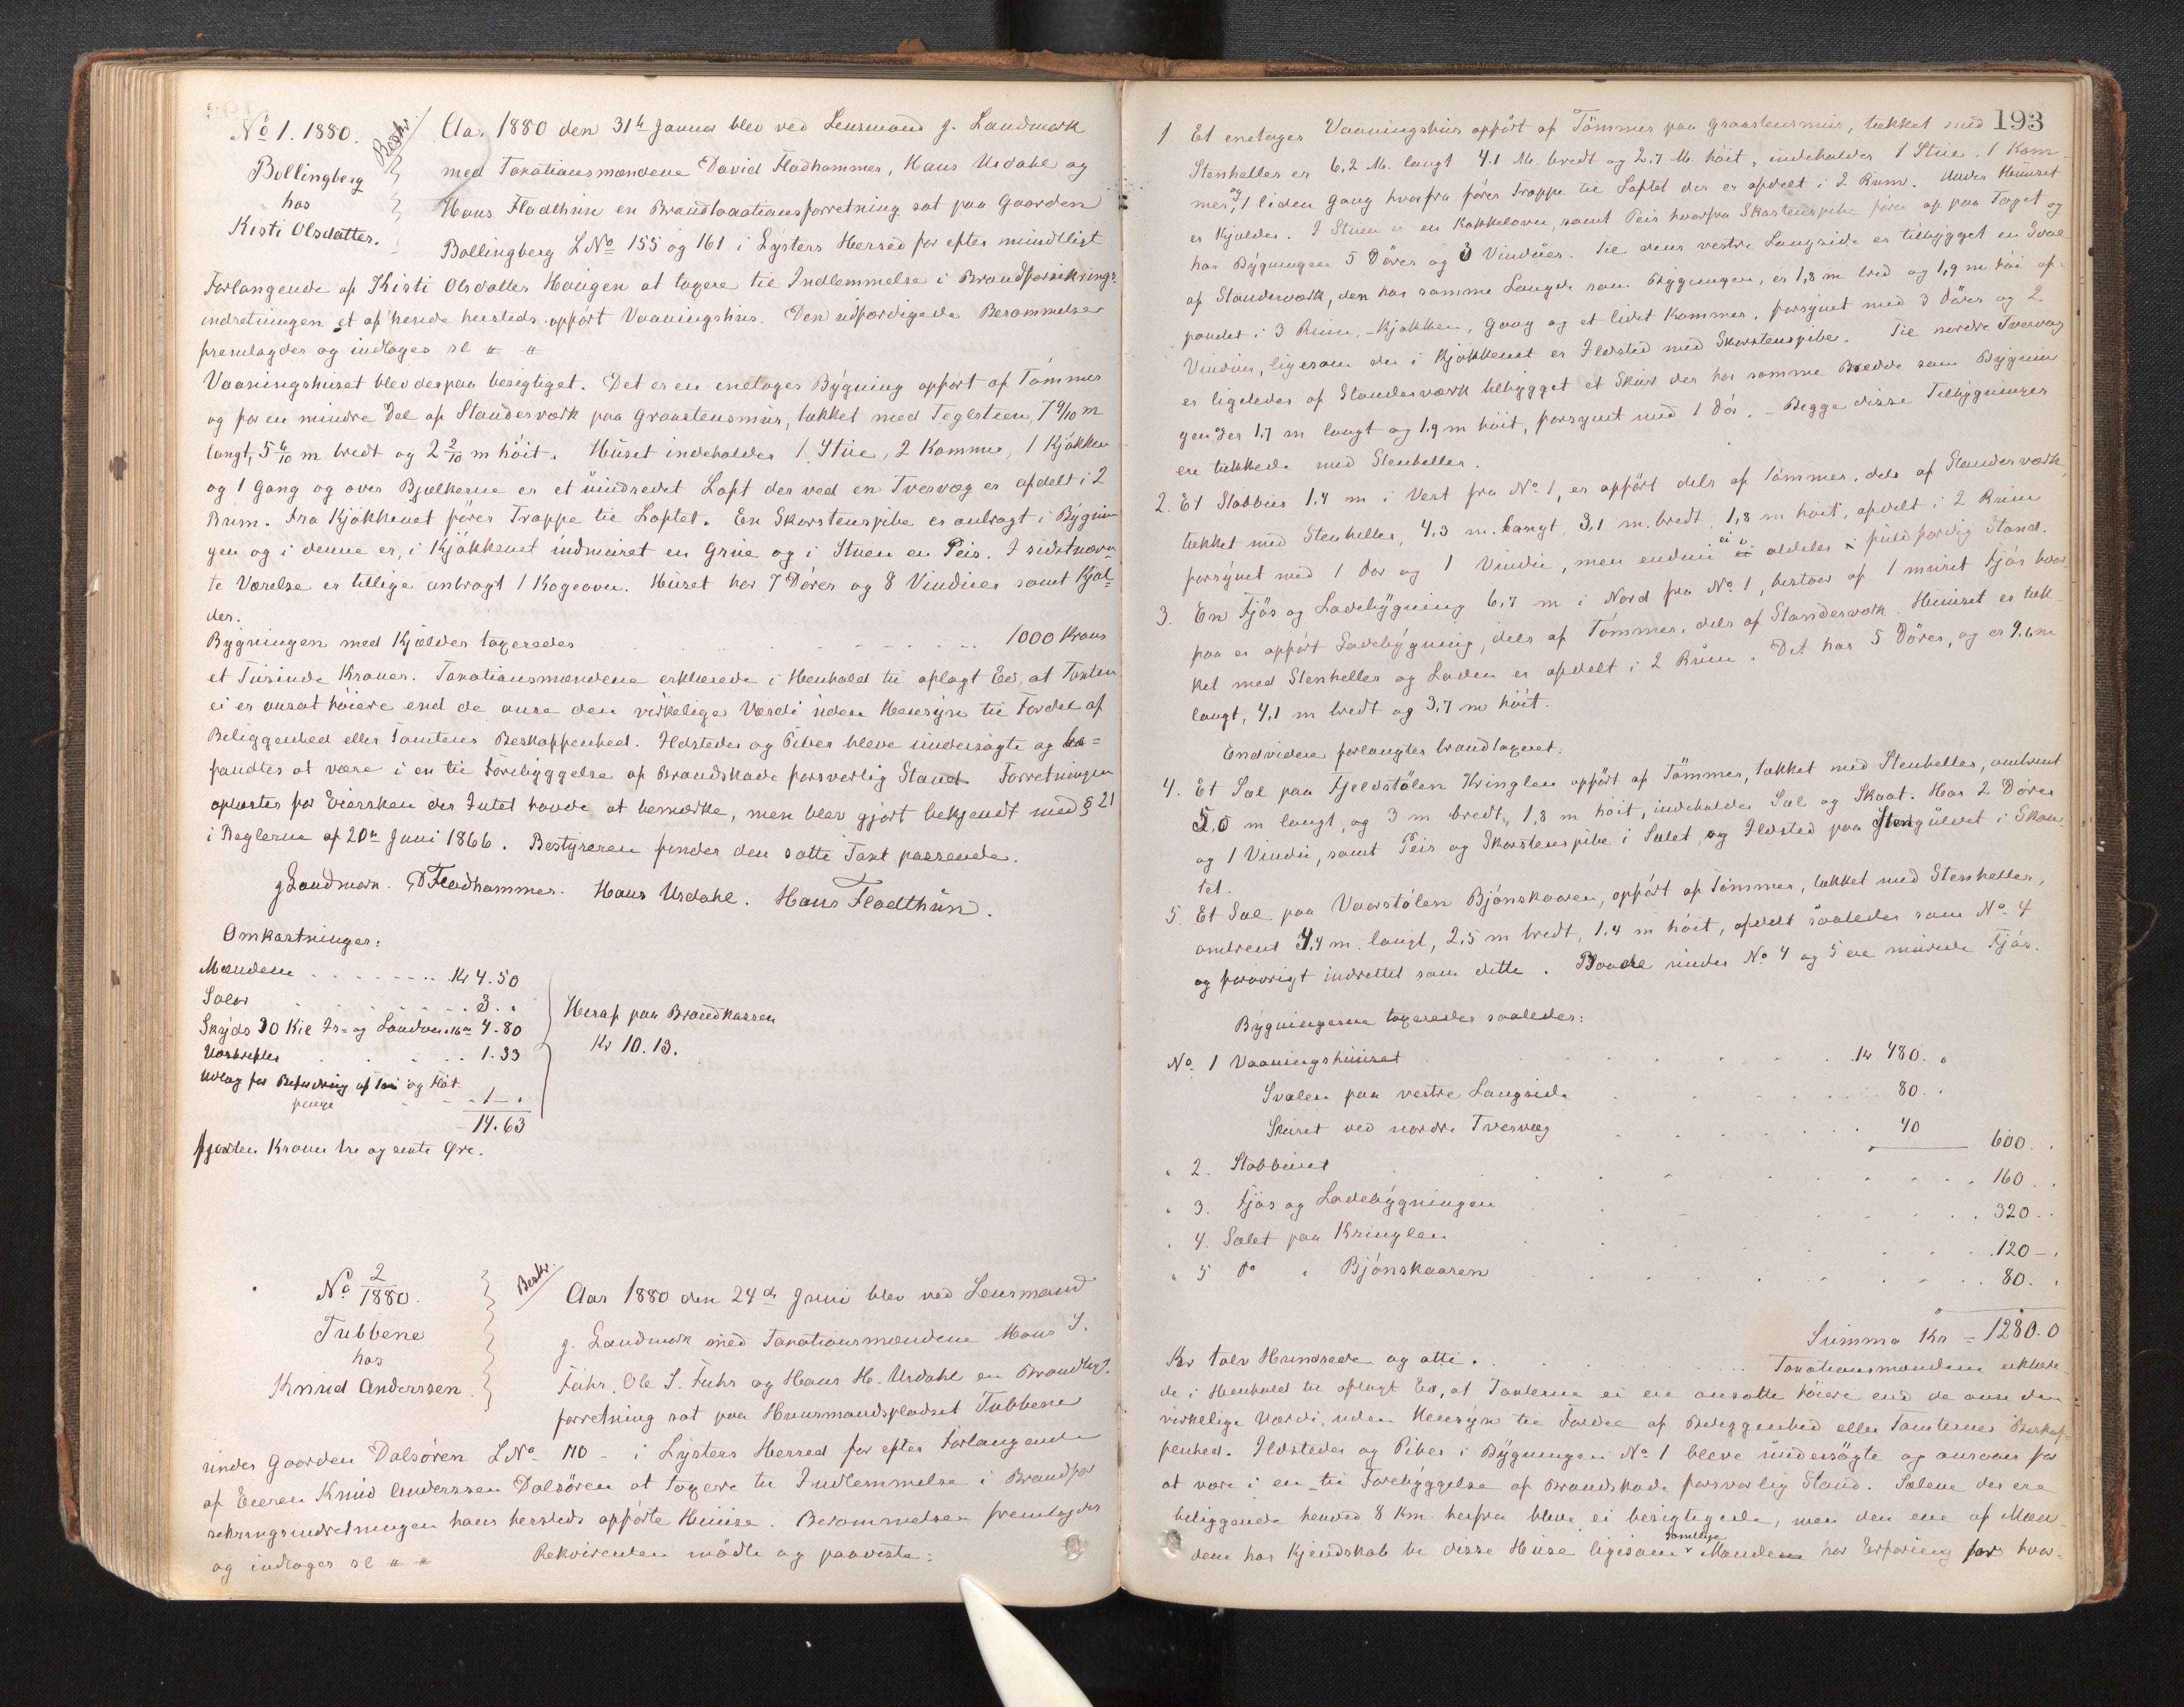 No 1. 1880.
Bollingberg
hos
Kisti Olsdatter.
Beskr.
Aar 1880 den 31te Januar blev ved Lensmand J. Landmark
med Taxationsmændene David Fladhammer, Hans Usdahl og
Hans Fladthun en Brandtaxationsforretning sat paa Gaarden
Bollingberg LNo 155 og 161 i Lysters Herred for efter mundtligt
Forlangende af Kisti Olsdatter Haugen at taxere til Indlemmelse i Brandforsikrings-
indretningen et af hende hersteds opført Vaaningshus. Den udfærdigede Berammelse
fremlagdes og indtages sl " "
Vaaningshuset blev derpaa besigtiget. Det er en enetages Bygning opført af Tømmer
og for en mindre Del af Standerværk paa Graastensmur, tækket med Teglsteen, 7 9/10 m
langt, 5 6/10 m bredt og 2 2/10 m høit. Huset indeholder 1 Stue, 2 Kammer, 1 Kjøkken
og 1 Gang og over Bjælkerne er et uindredet Loft der ved en Tvervæg er afdelt i 2
Rum. Fra Kjøkkenet fører Trappe til Loftet. En Skorstenspibe er anbragt i Bygnin-
gen og i denne er, i Kjøkkenet indmuret en Grue og i Stuen en Peis. I sidstnævn-
te Værelse er tillige anbragt 1 Kogeovn. Huset har 7 Døre og 8 Vinduer samt Kjæl-
der.
Bygningen med Kjælder taxeredes . . . . . . . . 1000 Kroner
et Tusinde Kroner. Taxationsmændene erklærede i Henhold til aflagt Ed, at Taxten
ei er ansat høiere end de anse den virkelige Værdi uden Hensyn til Fordel af
Beliggenhed eller Tomtens Beskaffenhed. Ildsteder og Piber bleve undersøgte og be-
fandtes at være i en til Forebyggelse af Brandskade forsvarlig Stand. Forretningen
oplæstes for Eiersken der Intet havde at bemærke, men blev gjort bekjendt med § 21
i Reglerne af 20de Juni 1866. Bestyreren finder den satte Taxt passende.
J Landmark. D Fladhammer. Hans Usdahl. Hans Fladthun.
Omkostninger:
Mændene . . . . . . . . Kr 4.50
Salær . . . . . . . . 3. "
Skyds 30 Kil Is- og Landvei 16 Øre 4.80
Udskrifter . . . . . 1.33
Udlæg for Befordring af Taxt og Flöt
penge . . . 1 - "
14.63
fjorten Kroner tre og sexti Øre.
Heraf paa Brandkassen
Kr 10.13.
No 2/1880.
Tubbene
hos
Knud Anderssen
Beskr.
Aar 1880 den 24de Juni blev ved Lensmand
J. Landmark med Taxationsmændene Hans S.
Fuhr, Ole S. Fuhr og Hans H. Usdahl en Brandtaxt.
forretning sat paa Husmandspladset Tubbene
under Gaarden Dalsøren LNo 110 - i Lysters Herred for efter Forlangende
af Eieren Knud Anderssen Dalsøren at taxere til Indlemmelse i Brandfor
sekringsindretningen hans hersteds opførte Huuse. Berammelsen fremlagdes
og indtages sl " " Rekvirenten mødte og paaviste:
193
1 Et enetages Vaaningshus opført af Tømmer paa Graastensmur, tækket med
Stenheller er 6,2 M. langt 4.1 M. bredt og 2,7 M. høit, indeholder 1 Stue, 1 Kam-
mer, og 1 liden Gang hvorfra fører Trappe til Loftet der er afdelt i 2 Rum. Under Huuset
er Kjælder. I Stuen er en Kakkelovn, samt Peis hvorfra Skorstenspibe fører op paa Taget og
har Bygningen 5 Døre og 3 Vinduer. Til dens vestre Langside er tilbygget en Sval
af Standerværk, den har samme Længde som Bygningen, er 1,8 m bred og 1,9 m høi af-
pandet i 3 Rum, - Kjøkken, Gang og et lidet Kammer, forsynet med 3 Døre og 2
Vinduer, ligesom der i Kjøkkenet er Ildsted med Skorstenspibe. Til nordre Tvervæg
er ligeledes af Standerværk tilbygget et Skur der har samme Bredde som Bygnin
gen er 1,7 m langt og 1,9 m høit, forsynet med 1 Dør. - Begge disse Tilbygninger
ere tækkede med Stenheller.
2. Et Stabbur 1.4 m i Vest fra No 1, er opført dels af Tømmer, dels af Standerværk,
tækket med Stenheller, 4,3 m. langt, 3,1 m. bredt, 1,8 m høit, afdelt i 2 Rum
forsynet med 1 Dør og 1 Vindu, men endnu ei aldeles i fuldfærdig Stand.
3. En Fjøs og Ladebygning 6,7 m i Nord fra No 1, bestaar af 1 muret Fjøs hvor-
paa er opført Ladebygning, dels af Tømmer, dels af Standerværk. Huuset er tæk-
ket med Stenheller og Laden er afdelt i 2 Rum. Det har 5 Døre, og er 9.6 m
langt, 4,1 m bredt og 3,7 m høit.
Endvidere forlangtes brandtaxeret:
4. Et Sæl paa Fjeldstølen Kringlen opført af Tømmer, tækket med Stenheller, omtrent
5,0 m langt, og 3 m bredt, 1,8 m høit, indeholder Sæl og Skaat. Har 2 Døre
og 1 Vindu, samt Peis og Skorstenspibe i Sælet, og Ildsted paa Stengulvet i Skaa-
tet.
5. Et Sæl paa Vaarstølen Bjønskaaren, opført af Tømmer, tækket med Stenheller,
omtrent 4,4 m. langt, 2,5 m bredt, 1,4 m høit, afdelt saaledes som No 4
og forøvrigt indrettet som dette. Baade under No 4 og 5 ere murede Fjøs.
Bygningerne taxeredes saaledes:
No 1 Vaaningshuuset . . . . Kr 480. "
Svalen paa vestre Langside . . . 80. "
Skuret ved nordre Tvervæg . . . 40 600. "
" 2. Stabburet . . . . 160. "
" 3. Fjøs og Ladebygningen . . . 320. "
" 4. Sælet paa Kringlen . . . 120 - "
" 5 Do " Bjønskaaren . . . 80. "
Summa Kr - 1280.0
Kr tolv Hundrede og otti. . . . . Taxationsmændene erklære-
de i Henhold til aflagt Ed, at Taxterne ei ere ansatte høiere end de anse den
virkelige Værdi, uden Hensyn til Fordel af Beliggenhed eller Tomternes Beskaf-
fenhed. Ildsteder og Piber i Bygningen No 1 bleve undersøgte og ansaaes for
at være i en til Forebyggelse af Brandskade forsvarlig Stand. Sælene der ere
beliggende henved 8 Km. herfra bleve ei besigtigede, men den ene af Mæn-
dene har Kjendskab til disse Huse ligesom samtlige Mændene har Erfaring for hvor-